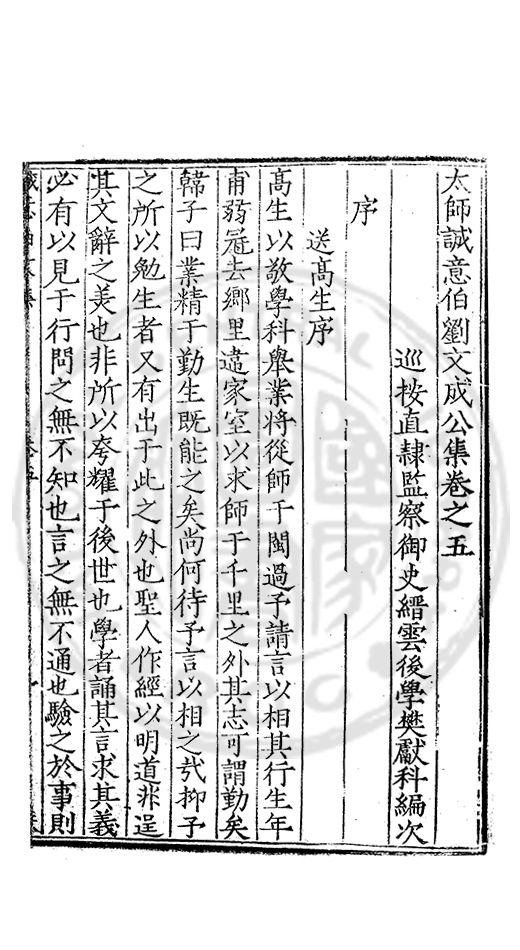 太師誠意伯劉文成公集卷之五
巡按直隸監察御史縉雲後學樊獻科編次
序
送高生序
高生以敬學科舉業將從師于閩過予請言以相其行生年
甫弱冠去鄉里違家室以求師于千里之外其志可謂勤矣
韓子曰業精于勤生既能之矣尚何待予言以相之㦲抑予
之所以勉生者又有出于此之外也聖人作經以明道非逞
其文辭之美也非所以夸耀于後世也學者誦其言求其義
必有以見于行問之無不知也言之無不通也驗之於事則